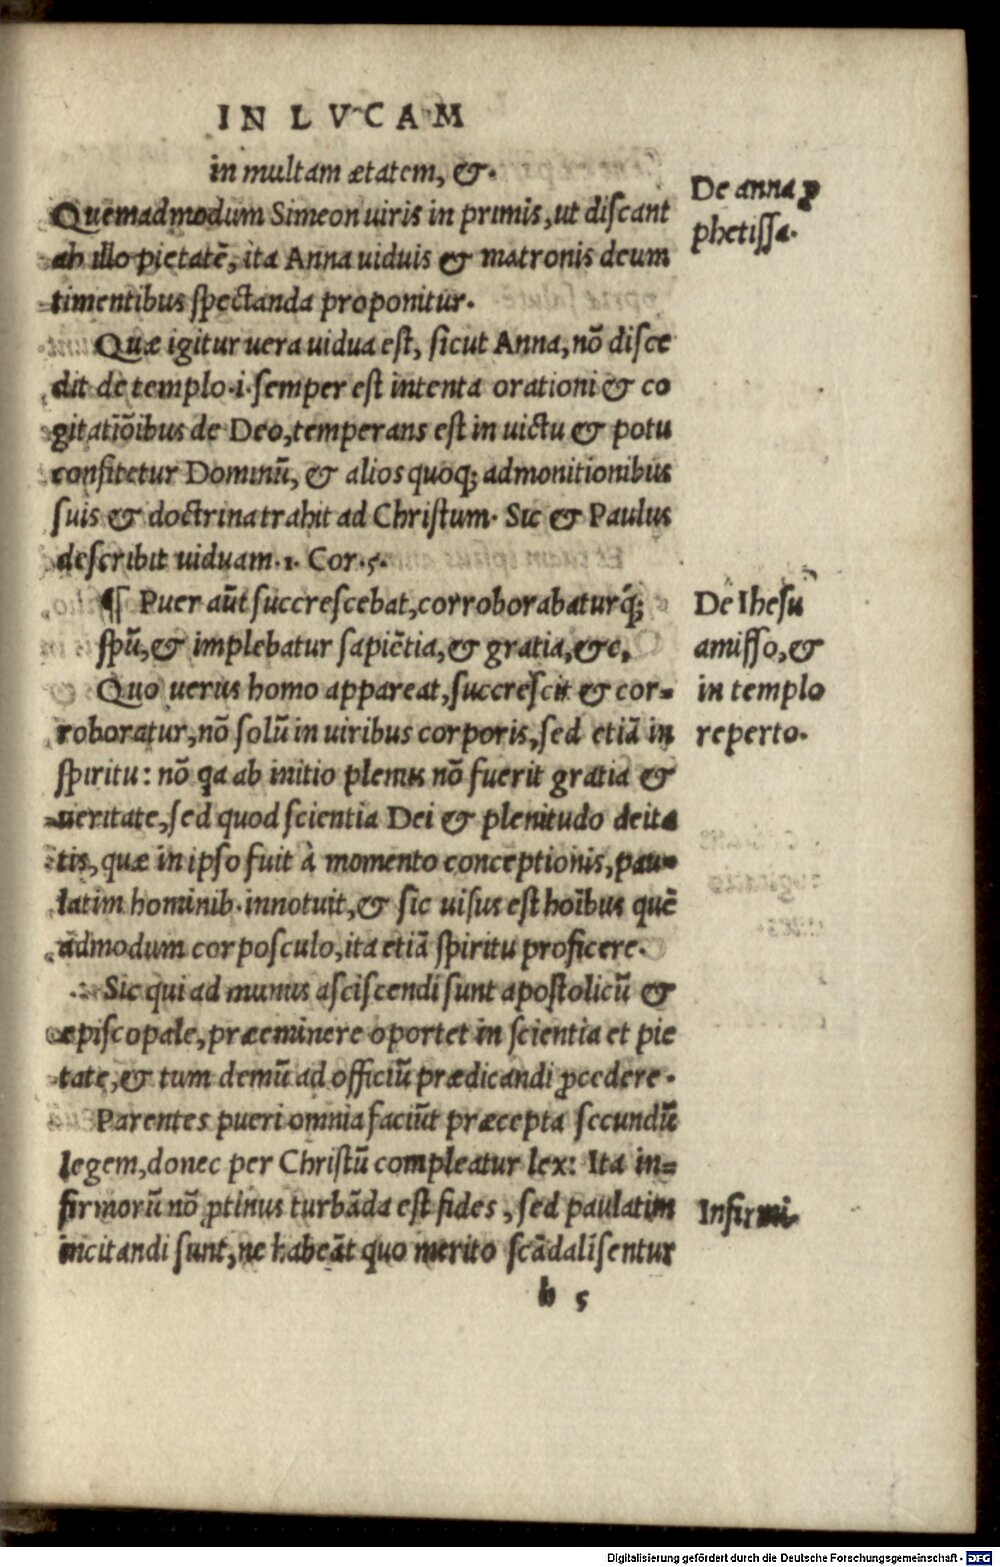 IN LVCAM
in multam ætatem, &.
Quemadmodum Simeon uiris in primis, ut diſcant
ab illo pietatẽ, ita Anna uiduis & matronis deum
timentibus ſpectanda proponitur.
Quæ igitur uera uidua eſt, ſicut Anna, nõ diſce
dit de templo .i. ſemper eſt intenta orationi & co
gitatiõibus de Deo, temperans eſt in uictu & potu
confitetur Dominũ, & alios quoq; admonitionibus
ſuis & doctrina trahit ad Chriſtum. Sic & Paulus
deſcribit uiduam .1. Cor .5.
¶ Puer aũt ſuccreſcebat, corroborabaturq́;
ſpũ, & implebatur ſapiẽtia, & gratia, &c,
Quo uerus homo appareat, ſuccreſcit & cor=
roboratur, nõ ſolũ in uiribus corporis, ſed etiã in
ſpiritu: nõ qa ab initio plenus nõ fuerit gratia &
ueritate, ſed quod ſcientia Dei & plenitudo deita
tis, quæ in ipſo fuit à momento conceptionis, pau=
latim hominib. innotuit, & ſic uiſus eſt hoĩbus quẽ
admodum corpoſculo, ita etiã ſpiritu proficere.
Sic qui ad munus aſciſcendi ſunt apoſtolicũ &
epiſcopale, præeminere oportet in ſcientia et pie
tate, & tum demũ ad officiũ prædicandi ꝓcedere.
Parentes pueri omnia faciũt præcepta ſecundũ
legem, donec per Chriſtũ compleatur lex: Ita in=
firmorũ nõ ꝓtinus turbãda eſt fides, ſed paulatim
incitandi ſunt, ne habeãt quo merito ſcãdaliſentur
b 5
De anna ꝓ
phetiſſa.
De Iheſu
amiſſo, &
in templo
reperto.
Infirmi.
Digitalisierung gefördert durch die Deutsche Forschungsgemeinschaft - DFG